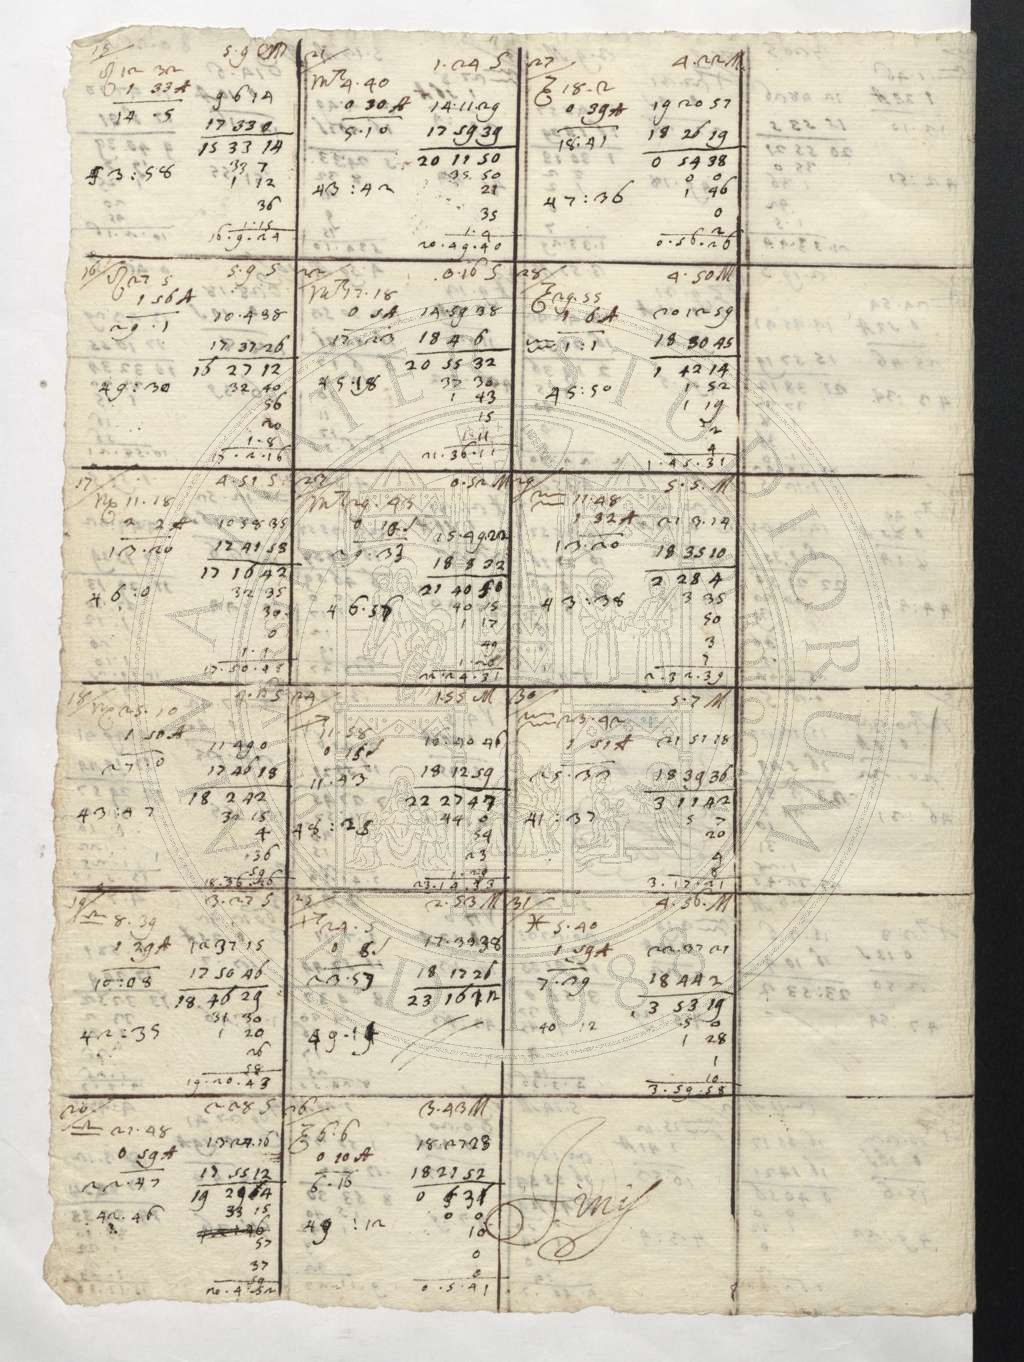 15 5.9 M
♌ 12 32
1 33 A 9 6 14
14 5 17 33 0
15 33 14
43:58 33 7
1 12
36
1.15
16.9.24
21 1.24 S
♏ 4.40
0 30 A 14.11.29
5.10 17 59 39
20 11 50
35 50
43:42 21
35
1.4
20.49.40
27 4.22 M
♑ 18.2
0 39 A 19 20 57
18.41 18 26 19
0 54 38
0 0
47:36 1 46
0
2
0.56.26
16 5.9 S
♌ 27 5
1 56 A
29.1 10.4 38
17 37 26
16 27 12
49:30 32 40
56
20
1.8
17.2.16
22 0.16 S
♏ 17.18
0 5 A 14.59 38
17.23 18 4 6
20 55 32
45:18 37 30
1 43
15
1.11
21.36.11
28 4.50 M
♑ 29.55
1 6 A 20 12 59
♒ 1:1 18 30 45
1 42 14
45:50 1 52
1 19
2
4
1.45.31
17 4.51 S
♍ 11.18
2 2 A 10 58 35
13.20 17 41 58
17 16 42
46:0 32 35
30
0
1.1
17.50.43
23 0.52 M
♏ 29.43
0 10 S 15.49 22
29.33 18 8 32
21 40 50
46.57 40 15
1 17
49
1.20
22.24.31
29 5.5.M
♒ 11.48
1 32 A 21 3.14
13.20 18 35 10
2 28 4
43:38 3 35
50
3
7
2.32.39
18
♍ 25.10
1 50 A 11 49 0
27 0 17 46 18
18 2 42
43:47 31 15
4
36
59
18.36.36
24 1 55 M
♐ 11 58
0 15 S 16:40 46
11.43 18 12 59
22 27 47
48:25 44 0
54
23
1.29
30 5.7 M
♒ 23.42
1 51 A 21 57 18
25.33 18 39 36
3 17 42
41:37 5 7
20
4
8
3.17.21
19 3.27 S
♎ 8.39
1 29 A 12 37 15
10:08 17 50 46
18.46 29
42:35 31 30
1 20
26
58
19.20.43
25 2.53 M
♐ 24.5
0 8 S 17.33 38
23.57 18 17 26
23 16 12
49.14
31 4.56.M
♓ 5.40
1 59 A 22 37 21
7.39 18 44 2
3 53 19
40 12 5 0
1 28
1
10
3.59.58
20 2 28 S
♎ 21.48
0 59 A 13 24.16
22.47 17 55 12
19 29 64
42.46 33 15
57
37
59
20.4.52
26 3.43 M
♑ 6.6
0 10 A 18.27 28
6.16 18 21 52
0 5 36
49:12 0 0
10
0
0
0.5.41
Finis